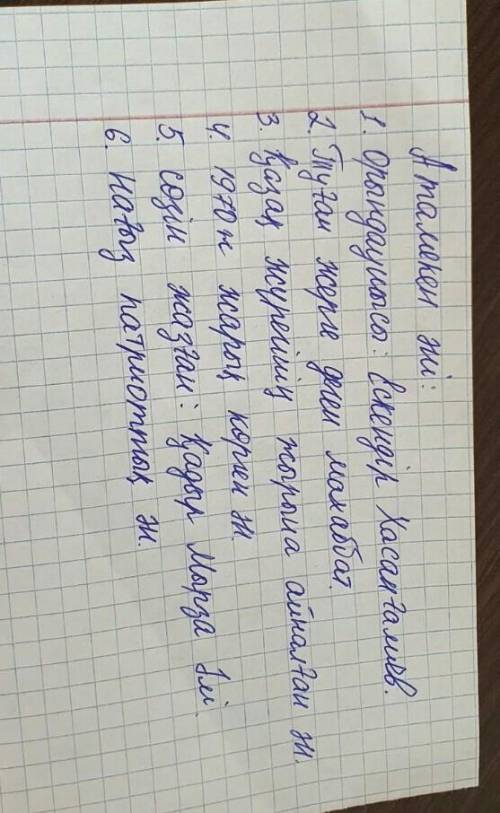 Атамекен әні:
1. Орындаушысы: Ескендір Хасанғалиев.
2. Туған жерге деген махаббат.
3. Қазақ жүрегінің жырына айналған ән.
4. 1970 ж жарық көрген ән
5. Сөзін жазған: Қадыр Мырза Әлі.
6. Нағыз патриоттық ән.